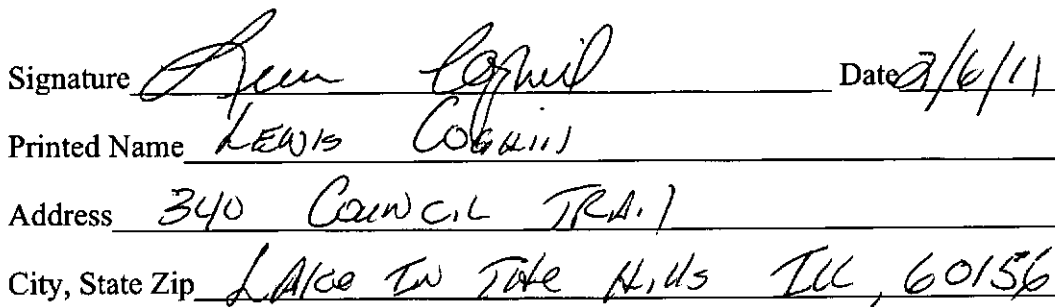 Signature Lewis Coghill Date 2/6/11
Printed Name LEWIS COGHill
Address 340 COUNCIL TRAil
City, State Zip LAKe IN THe Hills ILL, 60156